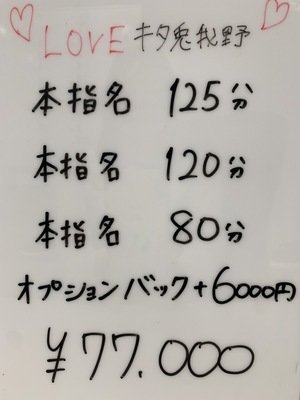 LOVE キタ兎我野
本指名 125分
本指名 120分
本指名 80分
オプションバック+6000円
¥77.000